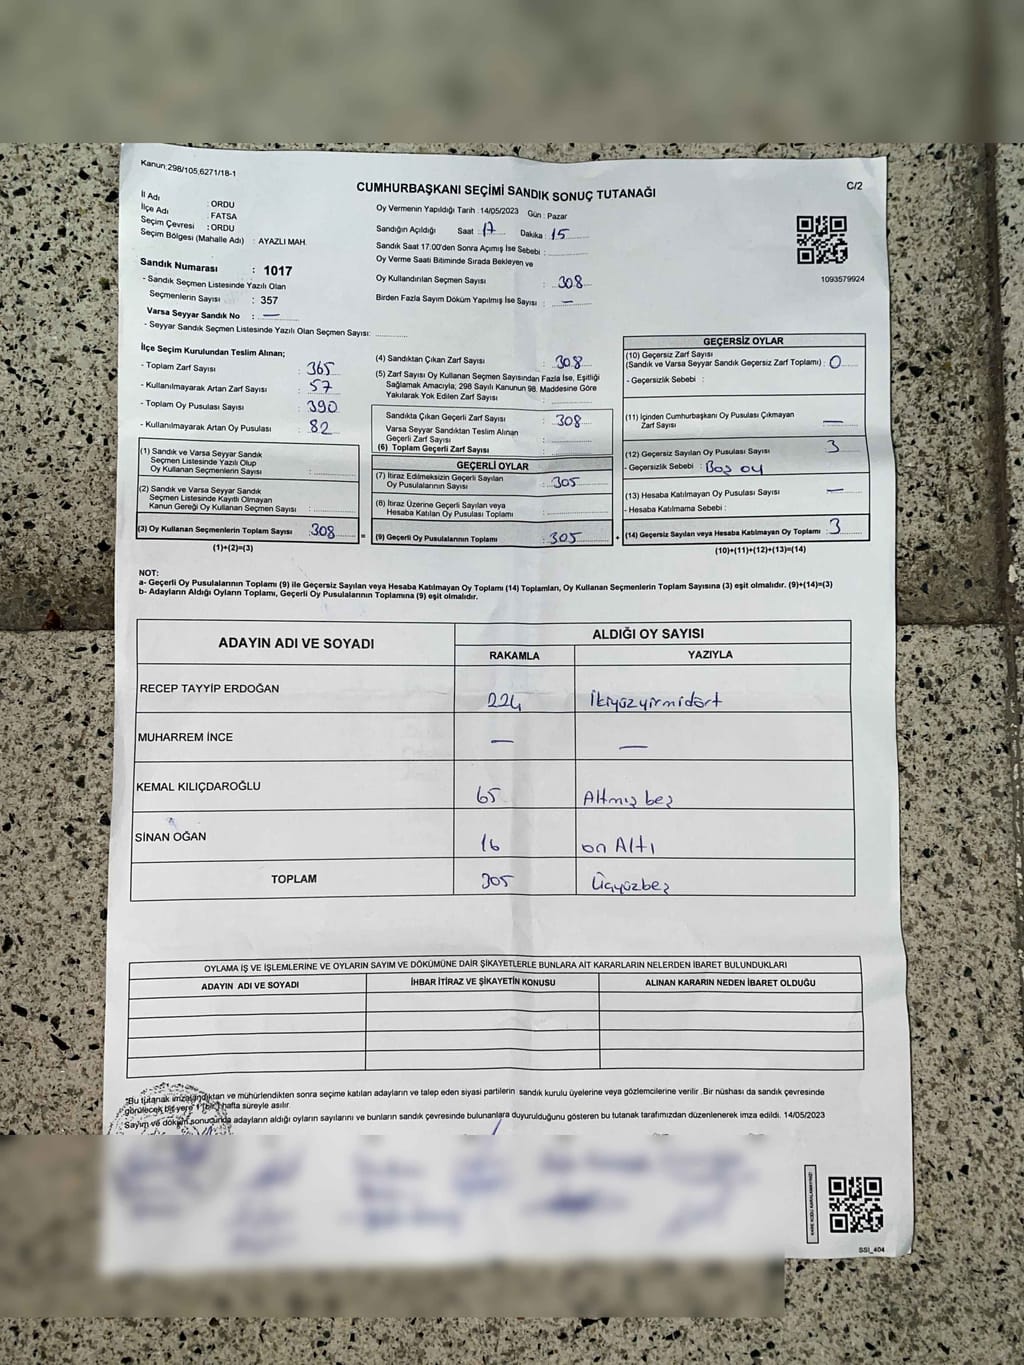 Kanun;298/105,6271/18-1
CUMHURBAŞKANI SEÇİMİ SANDIK SONUÇ TUTANAĞI
C/2
İl Adı : ORDU
İlçe Adı : FATSA
Seçim Çevresi : ORDU
Seçim Bölgesi (Mahalle Adı) : AYAZLI MAH.
Oy Vermenin Yapıldığı Tarih : 14/05/2023 Gün : Pazar
Sandığın Açıldığı Saat 17 Dakika : 15
Sandık Saat 17:00'den Sonra Açımış İse Sebebi :
Oy Verme Saati Bitiminde Sırada Bekleyen ve
Oy Kullandırılan Seçmen Sayısı : 308
Birden Fazla Sayım Döküm Yapılmış İse Sayısı : —
1093579924
Sandık Numarası : 1017
- Sandık Seçmen Listesinde Yazılı Olan
Seçmenlerin Sayısı : 357
Varsa Seyyar Sandık No : —
- Seyyar Sandık Seçmen Listesinde Yazılı Olan Seçmen Sayısı:
İlçe Seçim Kurulundan Teslim Alınan;
- Toplam Zarf Sayısı : 365
- Kullanılmayarak Artan Zarf Sayısı : 57
- Toplam Oy Pusulası Sayısı : 390
- Kullanılmayarak Artan Oy Pusulası : 82
(1) Sandık ve Varsa Seyyar Sandık
Seçmen Listesinde Yazılı Olup
Oy Kullanan Seçmenlerin Sayısı :
(2) Sandık ve Varsa Seyyar Sandık
Seçmen Listesinde Kayıtlı Olmayan
Kanun Gereği Oy Kullanan Seçmen Sayısı :
(3) Oy Kullanan Seçmenlerin Toplam Sayısı : 308
(1)+(2)=(3)
(4) Sandıktan Çıkan Zarf Sayısı : 308
(5) Zarf Sayısı Oy Kullanan Seçmen Sayısından Fazla İse, Eşitliği
Sağlamak Amacıyla; 298 Sayılı Kanunun 98. Maddesine Göre
Yakılarak Yok Edilen Zarf Sayısı :
Sandıkta Çıkan Geçerli Zarf Sayısı : 308
Varsa Seyyar Sandıktan Teslim Alınan
Geçerli Zarf Sayısı :
(6) Toplam Geçerli Zarf Sayısı :
GEÇERLİ OYLAR
(7) İtiraz Edilmeksizin Geçerli Sayılan
Oy Pusulalarının Sayısı : 305
(8) İtiraz Üzerine Geçerli Sayılan veya
Hesaba Katılan Oy Pusulası Toplamı :
(9) Geçerli Oy Pusulalarının Toplamı : 305
GEÇERSİZ OYLAR
(10) Geçersiz Zarf Sayısı
(Sandık ve Varsa Seyyar Sandık Geçersiz Zarf Toplamı) : 0
- Geçersizlik Sebebi :
(11) İçinden Cumhurbaşkanı Oy Pusulası Çıkmayan
Zarf Sayısı : —
(12) Geçersiz Sayılan Oy Pusulası Sayısı : 3
- Geçersizlik Sebebi : Boş oy
(13) Hesaba Katılmayan Oy Pusulası Sayısı : —
- Hesaba Katılmama Sebebi :
(14) Geçersiz Sayılan veya Hesaba Katılmayan Oy Toplamı : 3
(10)+(11)+(12)+(13)=(14)
NOT:
a- Geçerli Oy Pusulalarının Toplamı (9) ile Geçersiz Sayılan veya Hesaba Katılmayan Oy Toplamı (14) Toplamları, Oy Kullanan Seçmenlerin Toplam Sayısına (3) eşit olmalıdır. (9)+(14)=(3)
b- Adayların Aldığı Oyların Toplamı, Geçerli Oy Pusulalarının Toplamına (9) eşit olmalıdır.
ADAYIN ADI VE SOYADI
ALDIĞI OY SAYISI
RAKAMLA YAZIYLA
RECEP TAYYİP ERDOĞAN 224 İkiyüzyirmidört
MUHARREM İNCE — —
KEMAL KILIÇDAROĞLU 65 Altmış beş
SİNAN OĞAN 16 on Altı
TOPLAM 305 Üçyüzbeş
OYLAMA İŞ VE İŞLEMLERİNE VE OYLARIN SAYIM VE DÖKÜMÜNE DAİR ŞİKAYETLERLE BUNLARA AİT KARARLARIN NELERDEN İBARET BULUNDUKLARI
ADAYIN ADI VE SOYADI İHBAR İTİRAZ VE ŞİKAYETİN KONUSU ALINAN KARARIN NEDEN İBARET OLDUĞU
"Bu tutanak imzalandıktan ve mühürlendikten sonra seçime katılan adayların ve talep eden siyasi partilerin sandık kurulu üyelerine veya gözlemcilerine verilir .Bir nüshası da sandık çevresinde
görülecek bir yere 1 (bir) hafta süreyle asılır.
Sayım ve döküm sonucunda adayların aldığı oyların sayılarını ve bunların sandık çevresinde bulunanlara duyurulduğunu gösteren bu tutanak tarafımızdan düzenlenerek imza edildi. 14/05/2023
SSI_404